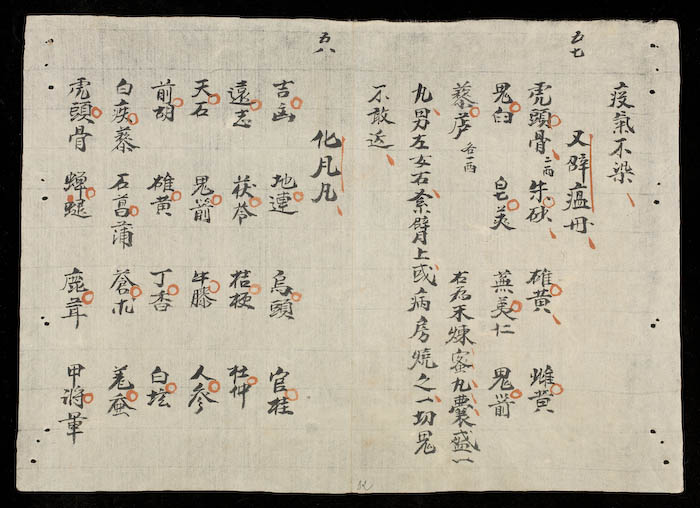 五七
疫氣不染
又辟瘟丹
虎頭骨 二两 朱砂 雄黄 雌黄
鬼臼 皂荚 蕪荑仁 鬼箭
藜芦 各一两 右為末煉蜜丸囊盛一
丸男左女右系臂上或病房燒之一切鬼
不敢近
五八
化凡凡
吉 地連 烏頭 官桂
遠志 茯苓 桔梗 杜仲
天石 鬼箭 牛膝 人参
前胡 雄黄 丁香 白
白疾藜 石菖蒲 蒼术 羌蚕
虎頭骨 蟬蜕 鹿茸 甲